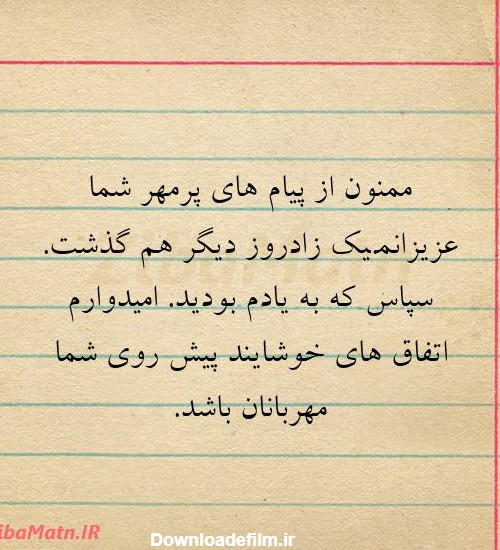 ممنون از پیام های پرمهر شما
عزیزانمیک زادروز دیگر هم گذشت.
سپاس که به یادم بودید. امیدوارم
اتفاق های خوشایند پیش روی شما
مهربانان باشد.
ibaMatn.IR
Downloadefilm.ir